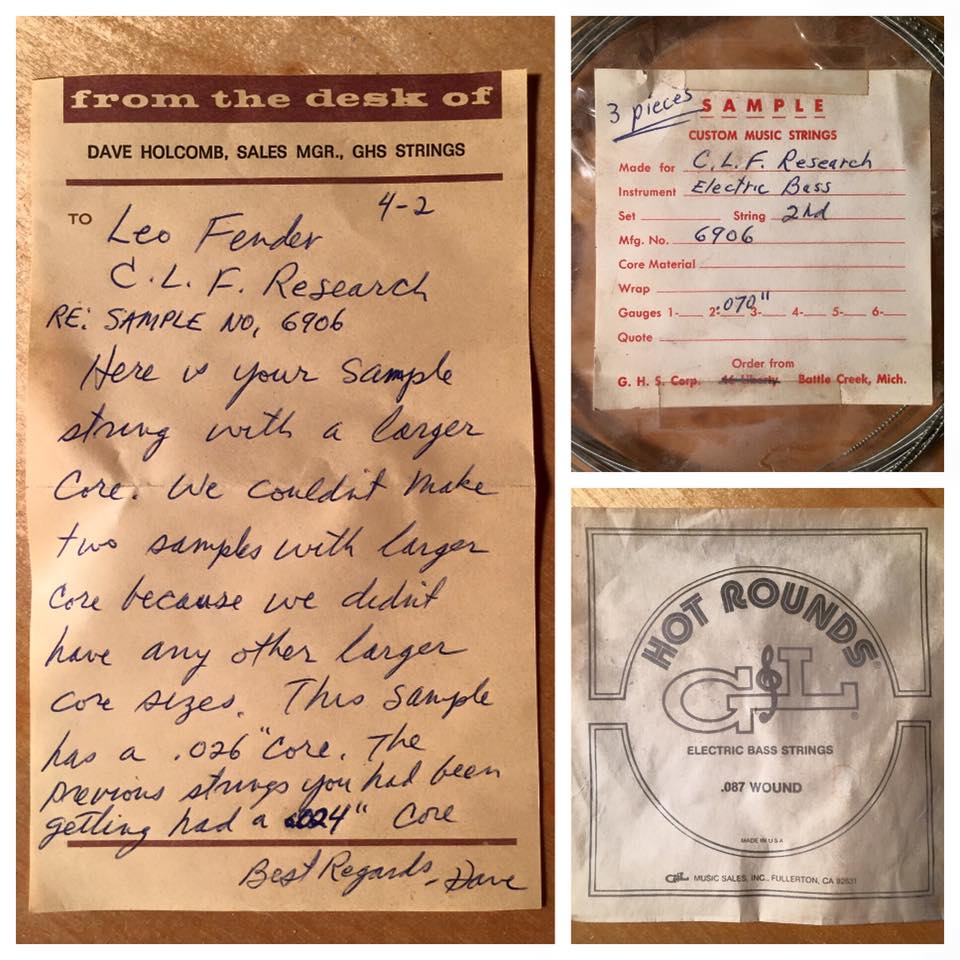 from the desk of
DAVE HOLCOMB, SALES MGR., GHS STRINGS
4-2
TO Leo Fender
C.L.F. Research
RE: SAMPLE NO, 6906
Here is your sample
string with a larger
core. We couldn't make
two samples with larger
core because we didn't
have any other larger
core sizes. This sample
has a .026" core. The
previous strings you had been
getting had a .024" core
Best Regards, Dave
3 pieces
SAMPLE
CUSTOM MUSIC STRINGS
Made for C.L.F. Research
Instrument Electric Bass
Set String 2nd
Mfg. No. 6906
Core Material
Wrap
Gauges 1- 2-.070" 3- 4- 5- 6-
Quote
Order from
G. H. S. Corp. 46 Liberty Battle Creek, Mich.
HOT ROUNDS®
G&L®
ELECTRIC BASS STRINGS
.087 WOUND
MADE IN USA
G&L MUSIC SALES, INC., FULLERTON, CA 92631